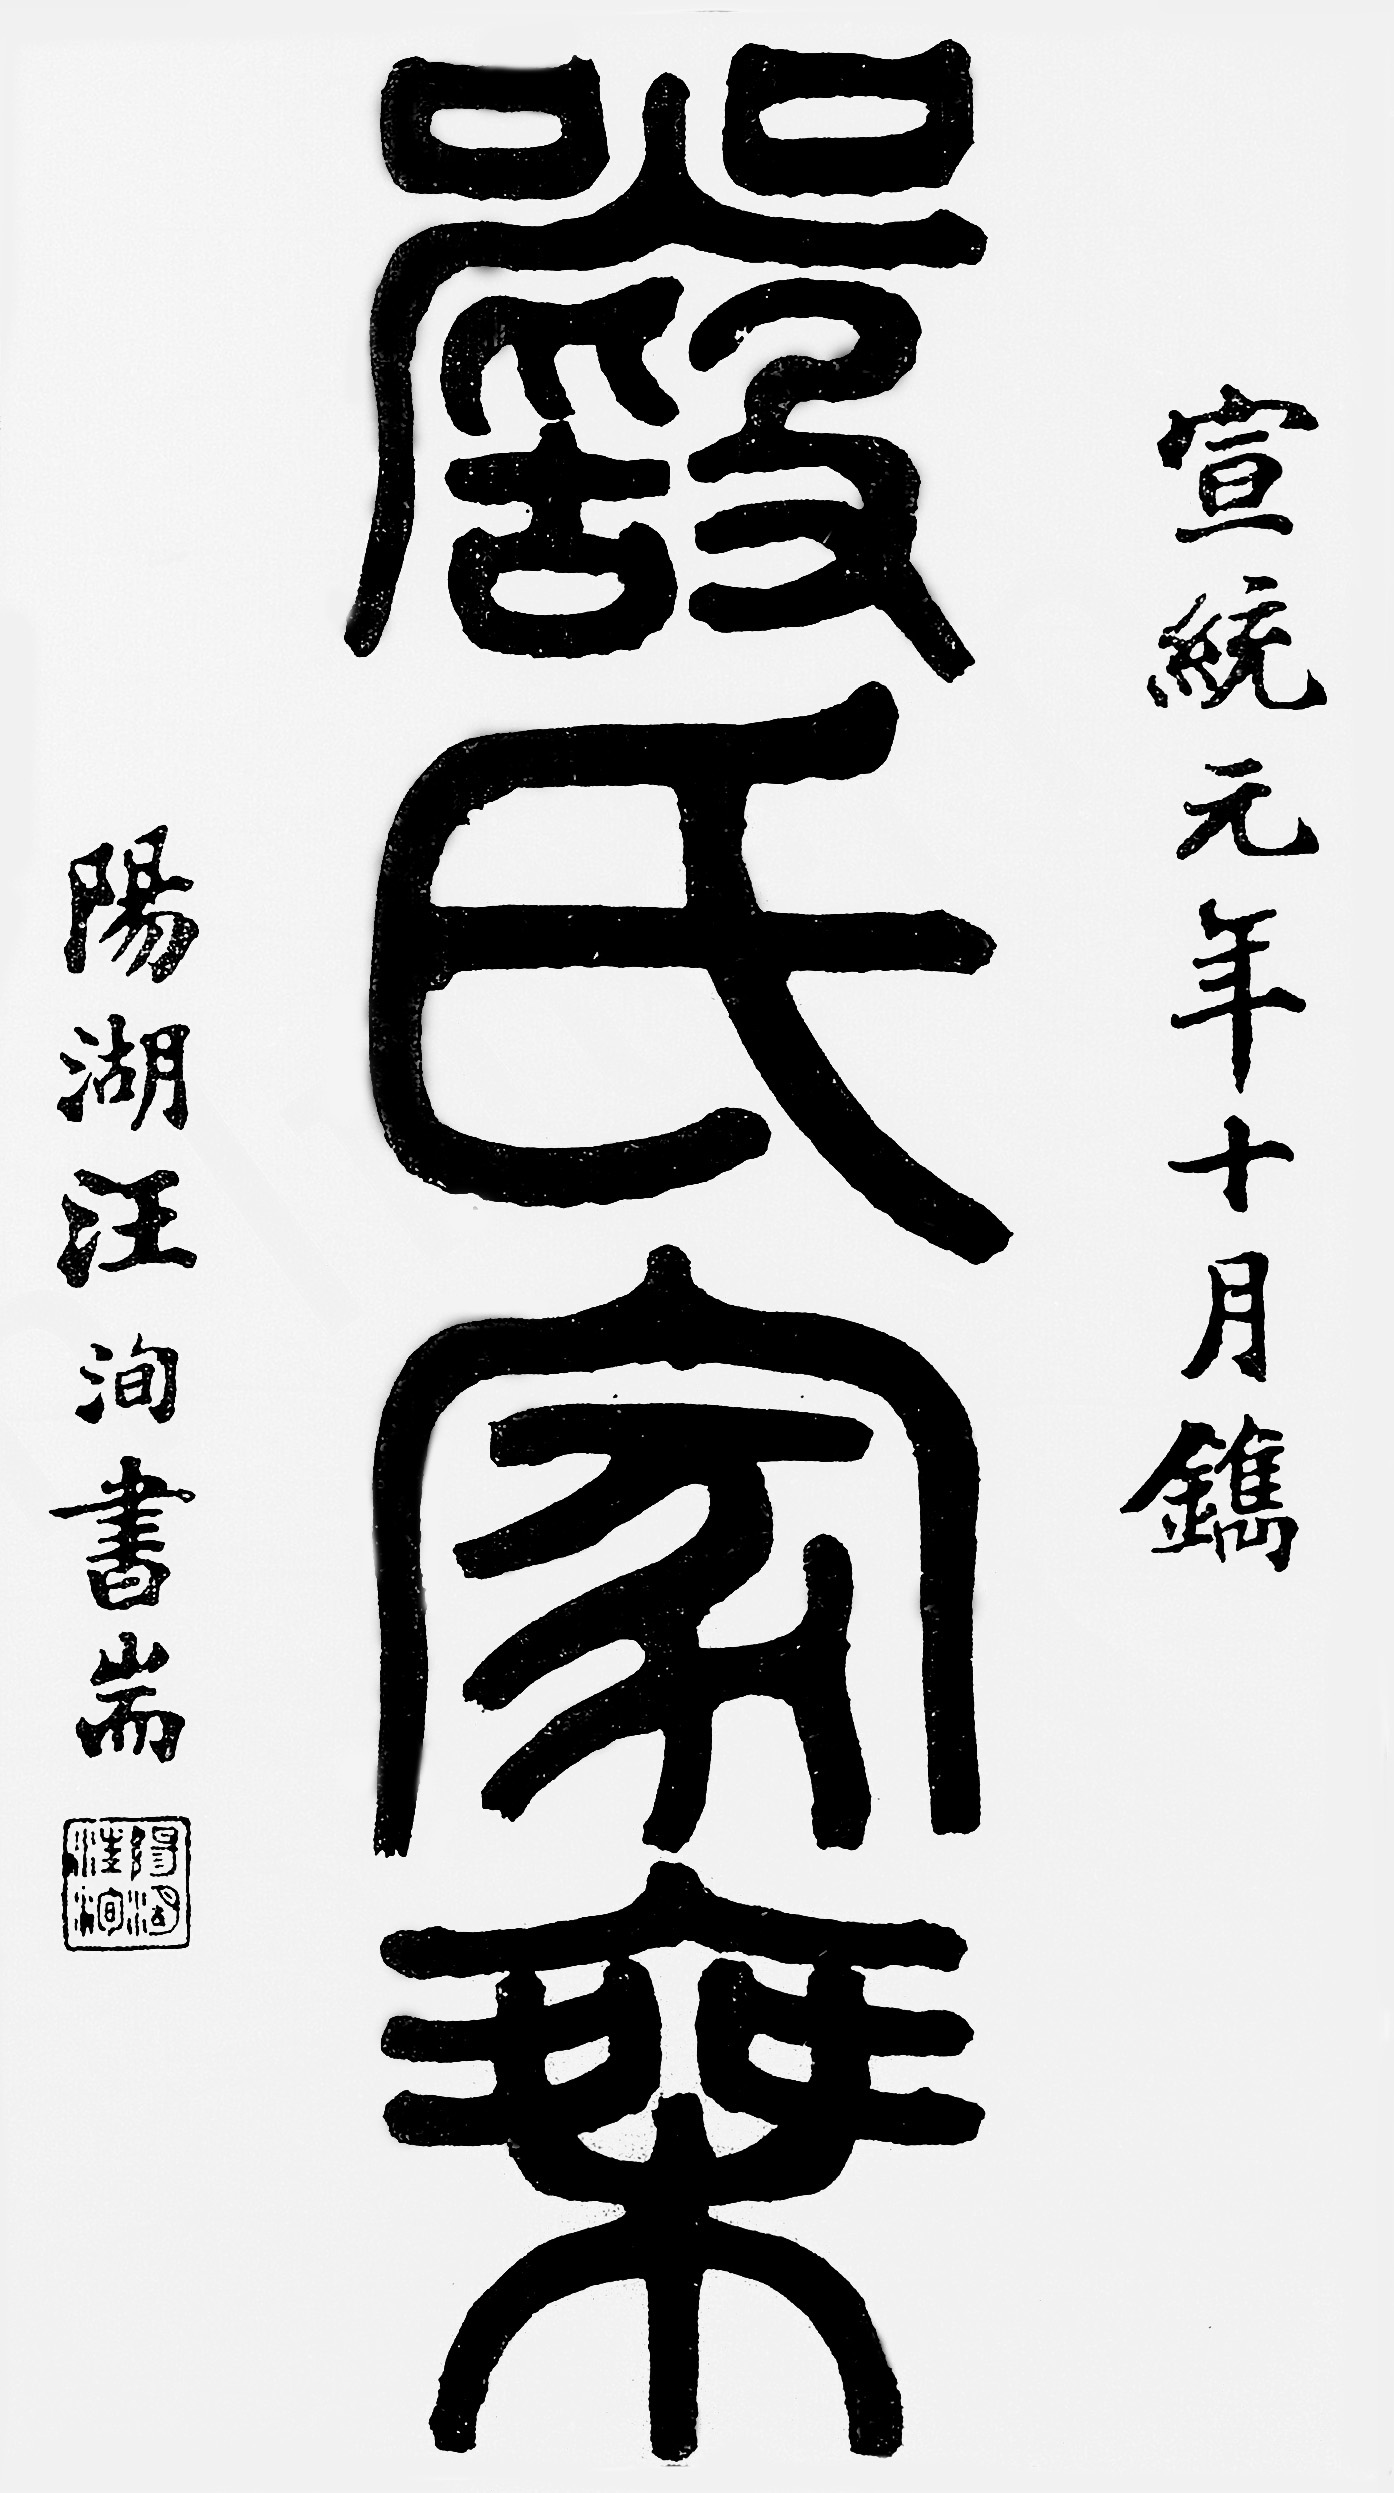 宣統元年十月鐫
嚴氏家乘
陽湖汪洵書耑
陽湖汪洵